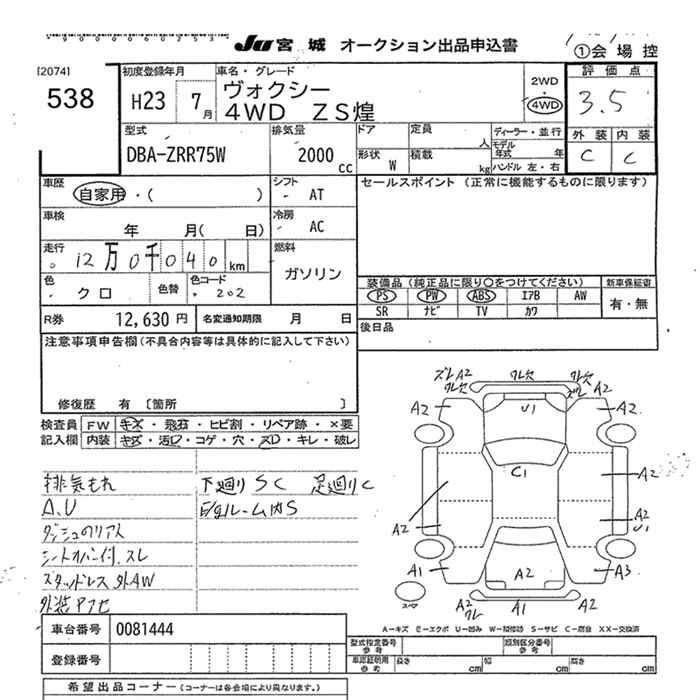 Ju 宮城 オークション出品申込書
①会場控
[2074]
538
初度登録年月
H23 7月
車名・グレード
ヴォクシー
4WD ZS煌
2WD
・
4WD
評価点
3.5
外装 内装
C C
型式
DBA-ZRR75W
排気量
2000 cc
ドア
定員 人
ディーラー・並行
モデル年式 年
形状 W
積載 kg
ハンドル 左・右
車歴
自家用・( )
シフト
AT
セールスポイント (正常に機能するものに限ります)
車検
年 月( 日)
冷房
AC
走行
12万0千040km
燃料
ガソリン
色
クロ
色替
色コード
202
装備品 (純正品に限り○をつけてください)
新車保証書
PS PW ABS エアB AW
有・無
SR ナビ TV カワ
R券 12,630円
名変通知期限 月 日
後日品
注意事項申告欄(不具合内容等は具体的に記入して下さい)
修復歴 有 〔箇所 〕
検査員記入欄
FW キズ・飛石・ヒビ割・リペア跡・×要
内装 キズ・汚レ・コゲ・穴・スレ・キレ・破レ
排気もれ
下廻りSC 足廻りC
A.U
ダッシュのリアト
シートオバン付.スレ
スタッドレス 外AW
外装アクセ
ズレ A2
クレ欠 クレ欠 クレ欠
ズレ A2
A2 U1 A2
C1
A2
A2
A2
U1
A1 A2 A3
スペア
A2
クレ
A1 A2
A-キズ E-エクボ U-凹み W-補修跡 S-サビ C-腐食 XX-交換済
車台番号 0081444
登録番号
型式指定番号 参考
類別区分番号 参考
車庫証明用 参考
長さ cm
幅 cm
高さ cm
希望出品コーナー (コーナーは各会場により異なります。)